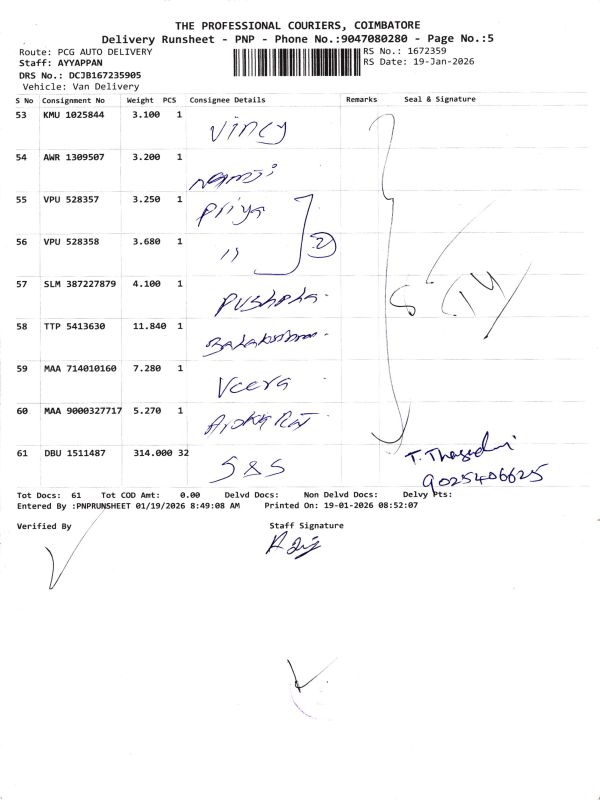 THE PROFESSIONAL COURIERS, COIMBATORE
Delivery Runsheet - PNP - Phone No.:9047080280 - Page No.:5
Route: PCG AUTO DELIVERY RS No.: 1672359
Staff: AYYAPPAN RS Date: 19-Jan-2026
DRS No.: DCJB167235905
Vehicle: Van Delivery
S No Consignment No Weight PCS Consignee Details Remarks Seal & Signature
53 KMU 1025844 3.100 1 Vincy
54 AWR 1309507 3.200 1
55 VPU 528357 3.250 1 Priya
56 VPU 528358 3.680 1 11 2
57 SLM 387227879 4.100 1 Pushpha
58 TTP 5413630 11.840 1
59 MAA 714010160 7.280 1 Veera
60 MAA 9000327717 5.270 1
61 DBU 1511487 314.000 32 S&S
9025406625
Tot Docs: 61 Tot COD Amt: 0.00 Delvd Docs: Non Delvd Docs: Delvy Pts:
Entered By :PNPRUNSHEET 01/19/2026 8:49:08 AM Printed On: 19-01-2026 08:52:07
Verified By Staff Signature